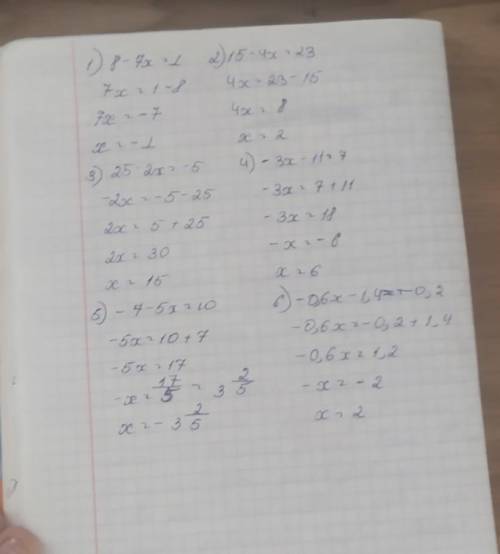 1) 8-7x=1
7x=1-8
7x=-7
x=-1
2) 15-4x=23
4x=23-15
4x=8
x=2
3) 25-2x=-5
-2x=-5-25
2x=5+25
2x=30
x=15
4) -3x-11=7
-3x=7+11
-3x=18
-x=-6
x=6
5) -7-5x=10
-5x=10+7
-5x=17
-x=17/5=3 2/5
x=-3 2/5
6) -0,6x-1,4x=-0,2
-0,6x=-0,2+1,4
-0,6x=1,2
-x=-2
x=2